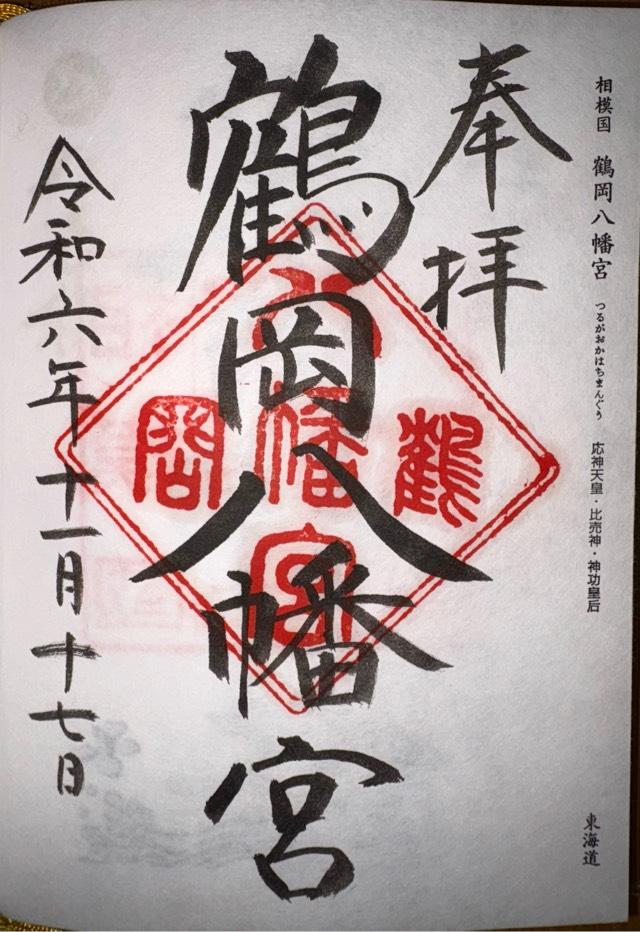 相模国 鶴岡八幡宮 つるがおかはちまんぐう 応神天皇・比売神・神功皇后
東海道
奉拝
鶴岡八幡宮
鶴 岡 八幡宮
令和六年十一月十七日